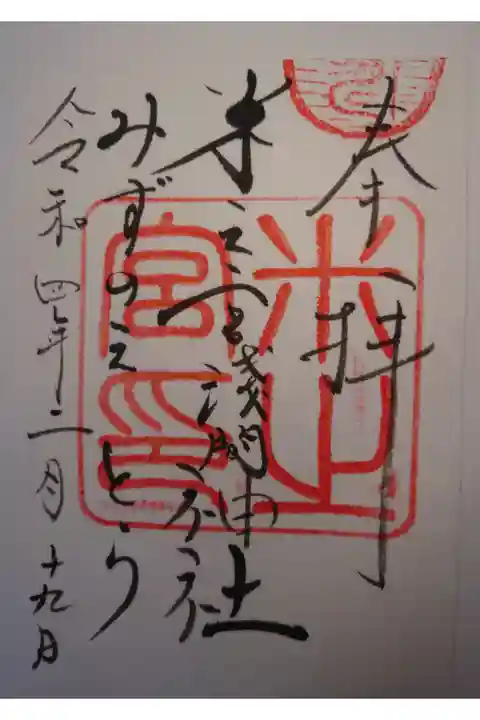 奉拝
米之宮浅間神社
みずのえとら
令和四年二月十九日
米之
宮印